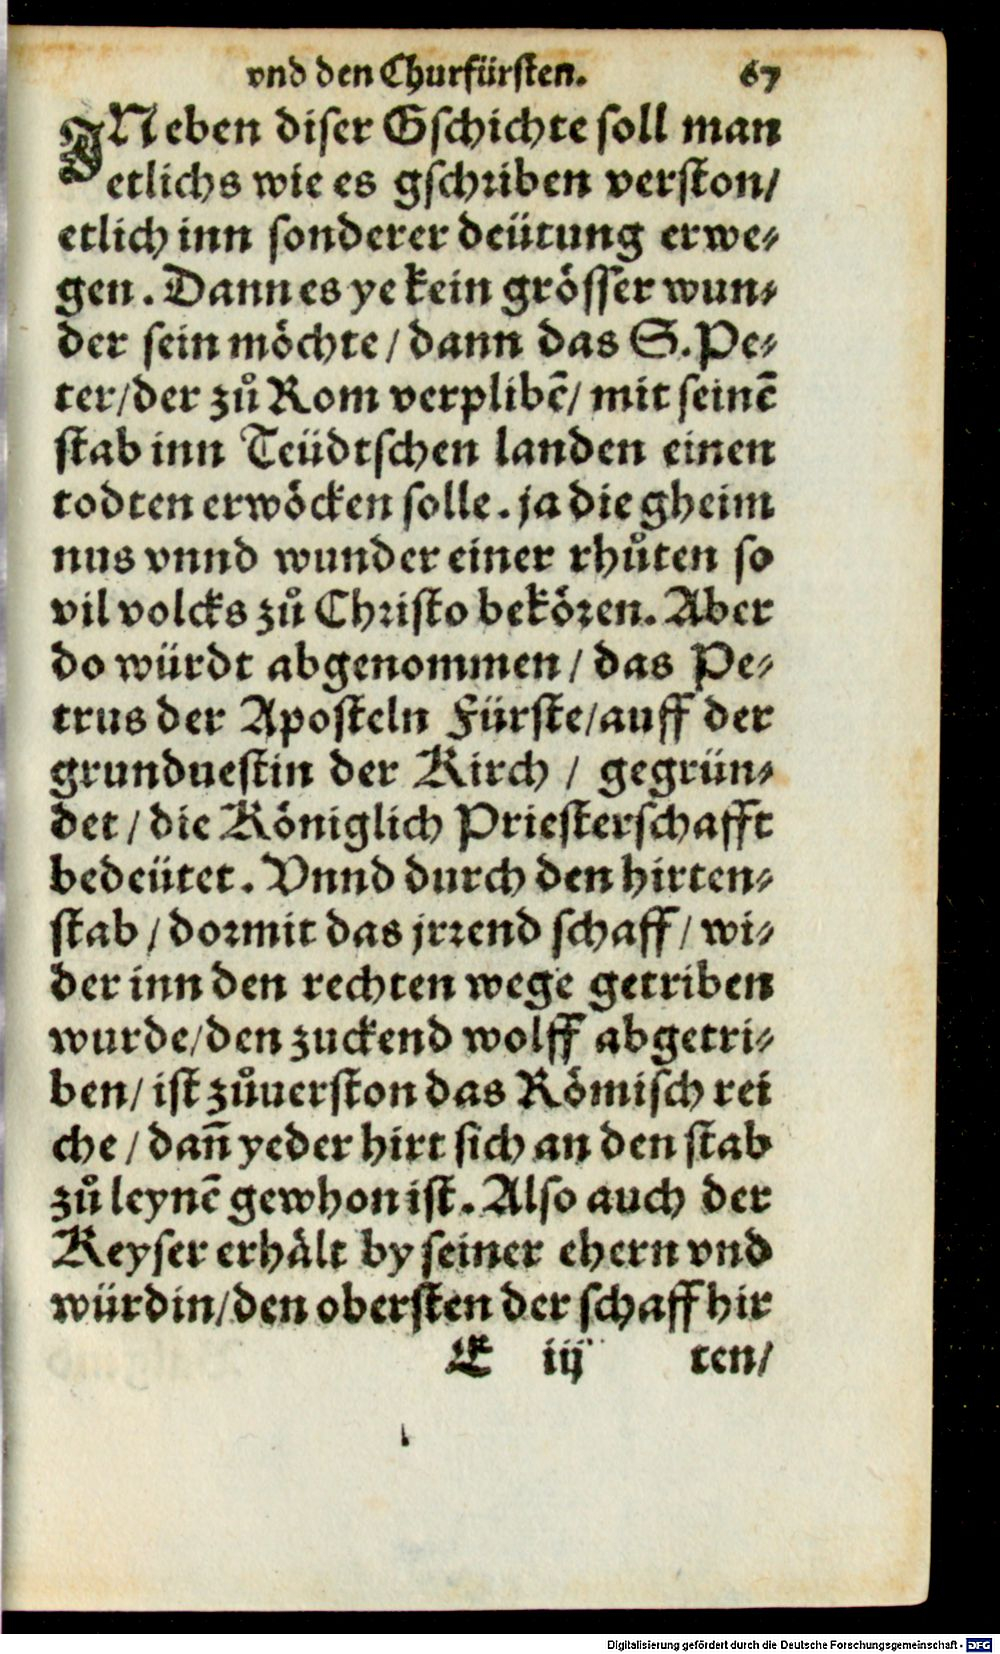 vnd den Churfürsten. 67
JN eben diser Gschichte soll man
etlichs wie es gschriben verston/
etlich inn sonderer deütung erwe⸗
gen. Dann es ye kein grösser wun⸗
der sein möchte / dann das S. Pe⸗
ter/der zů Rom verplibē/ mit seinē
stab inn Teüdtschen landen einen
todten erwöcken solle. ja die gheim
nus vnnd wunder einer rhůten so
vil volcks zů Christo bekören. Aber
do würdt abgenommen / das Pe⸗
trus der Aposteln Fürste/auff der
grunduestin der Kirch / gegrün⸗
det / die Königlich Priesterschafft
bedeütet. Vnnd durch den hirten⸗
stab / dormit das jrrend schaff / wi⸗
der inn den rechten wege getriben
wurde/den zuckend wolff abgetri⸗
ben/ ist zůuerston das Römisch rei
che / dañ yeder hirt sich an den stab
zů leynē gewhon ist. Also auch der
Keyser erhålt by seiner ehern vnd
würdin/den obersten der schaff hir
E iij ten/
Digitalisierung gefördert durch die Deutsche Forschungsgemeinschaft - DFG